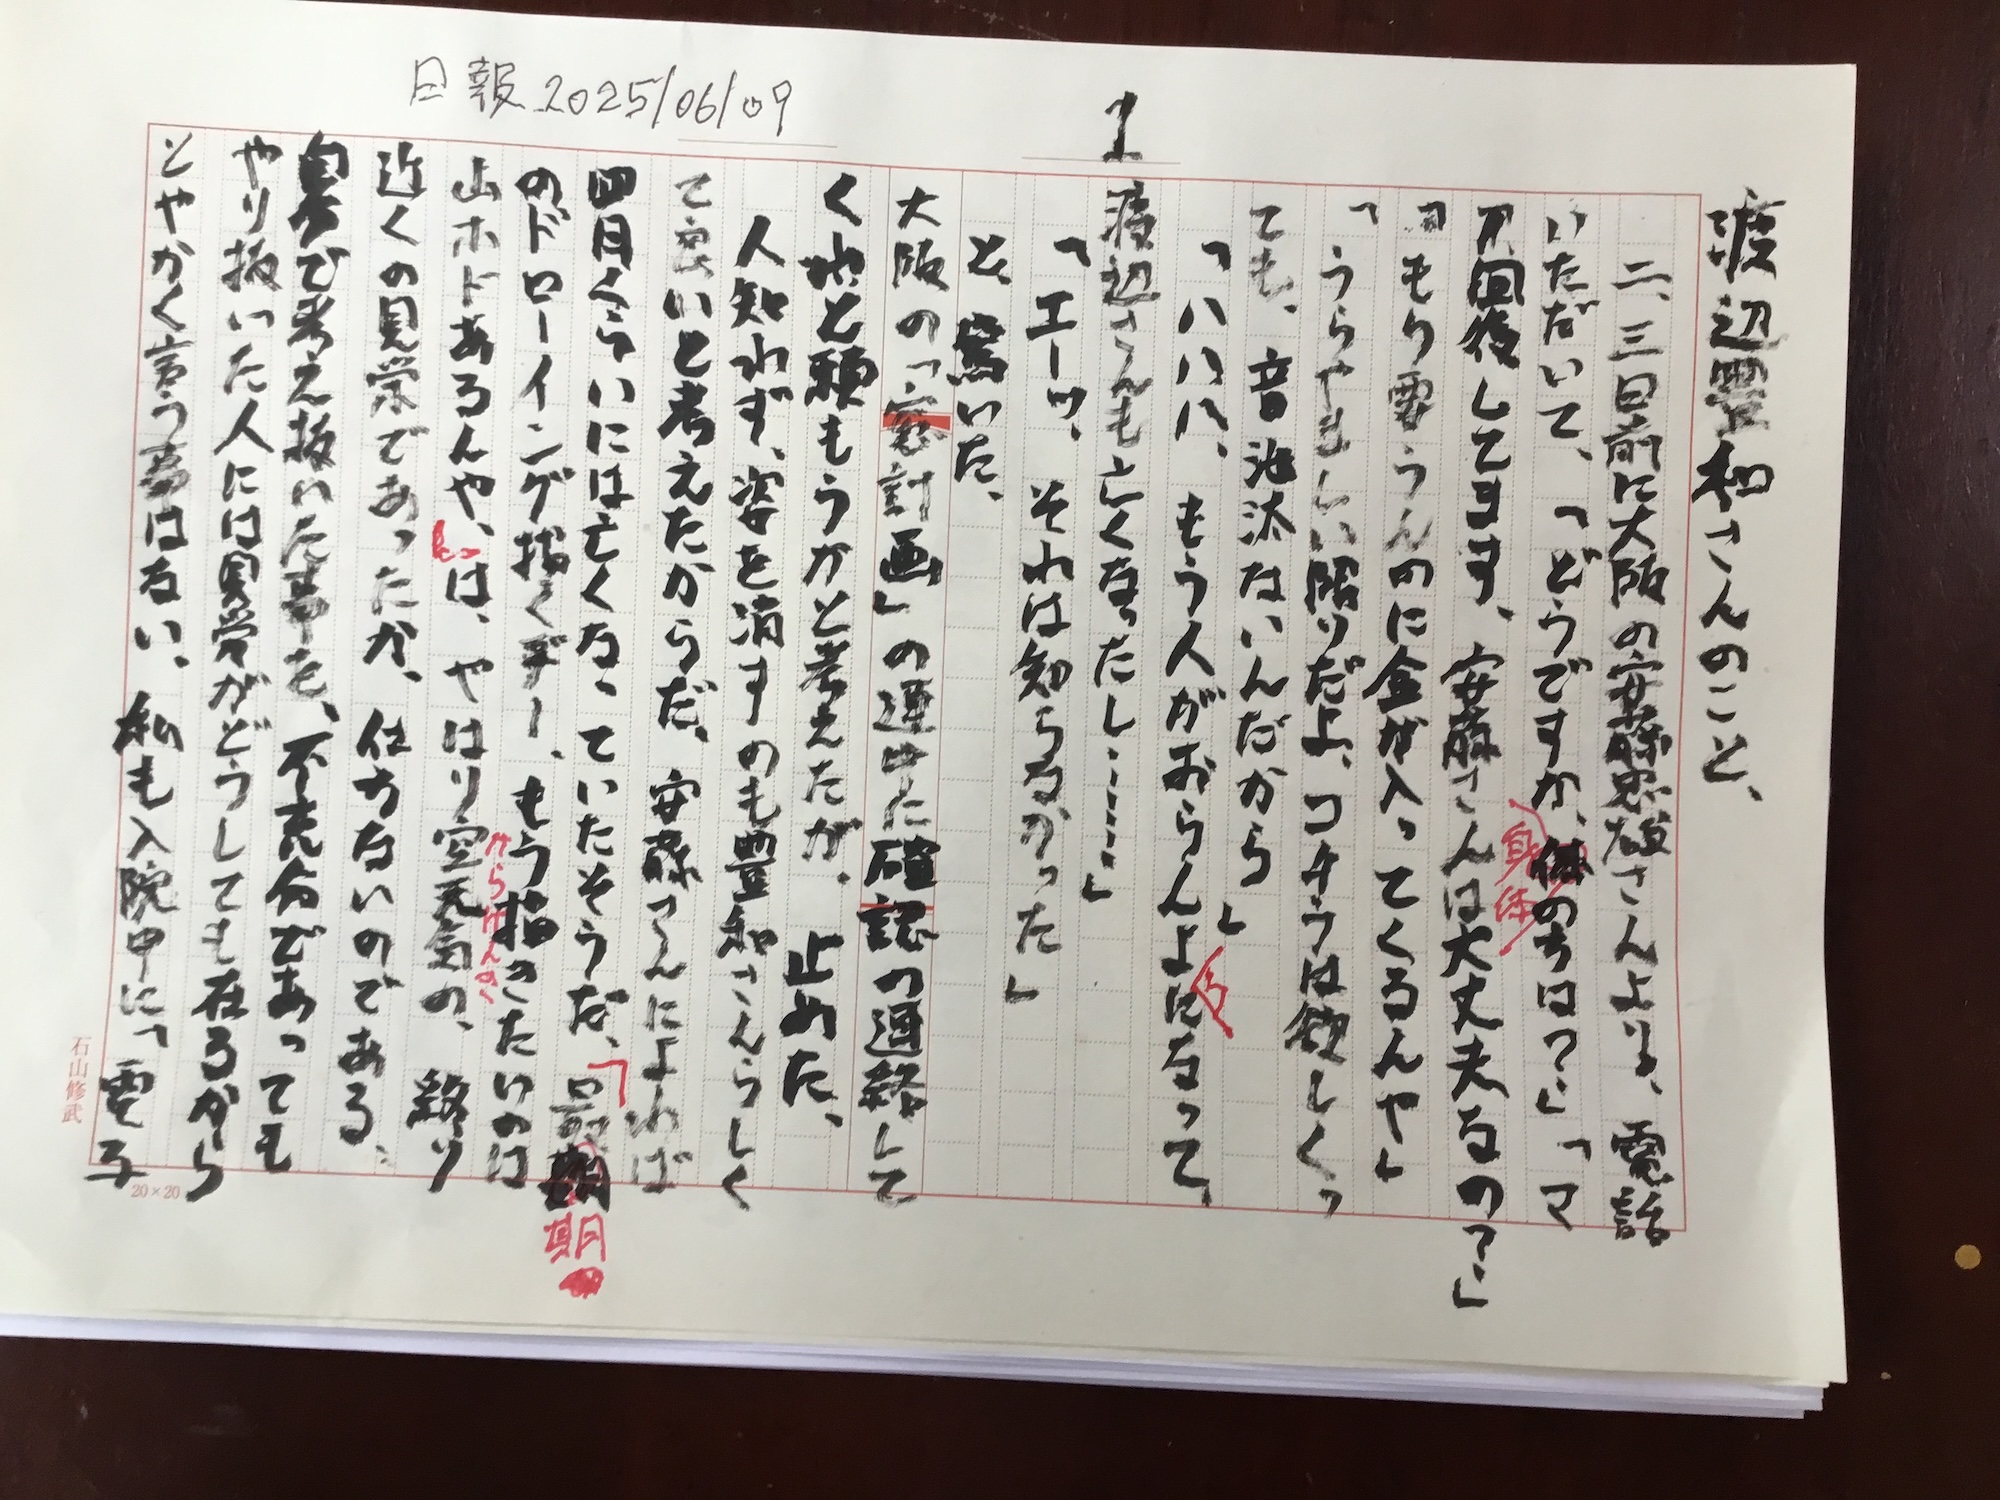 日報 2025/06/09
1
渡辺豊和さんのこと、
二、三日前に大阪の安藤忠雄さんより、電話
いただいて、「どうですか、体の方は?」「マ
身体
ア回復してます、安藤さんは大丈夫なの?」
「もり需うんのに金が入ってくるんや」
「うらやましい限りだよ、コチラは欲しくっ
ても、音沙汰ないんだから」
「ハハハ、もう人がおらんよになって、
う
渡辺さんも亡くなったし……」
「エーッ、それは知らなかった」
と、驚いた、
大阪の「窓計画」の連中に確認の連絡して
くれと頼もうかと考えたが、止めた、
人知れず、姿を消すのも豊和さんらしく
て良いと考えたからだ、安藤さんによれば
四月くらいには亡くなっていたそうだ、「最期
期
のドローイング描くぞー、もう描きたいのは
山ホドあるんや、」は、やはり空元気の、終り
からげんき
近くの見栄であったか、仕方ないのである、
鼻で考え抜いた事を、不充分であっても
やり抜いた人には異受がどうしても在るから
とやかく言う事はない、私も入院中に「電子
石山修武
20×20